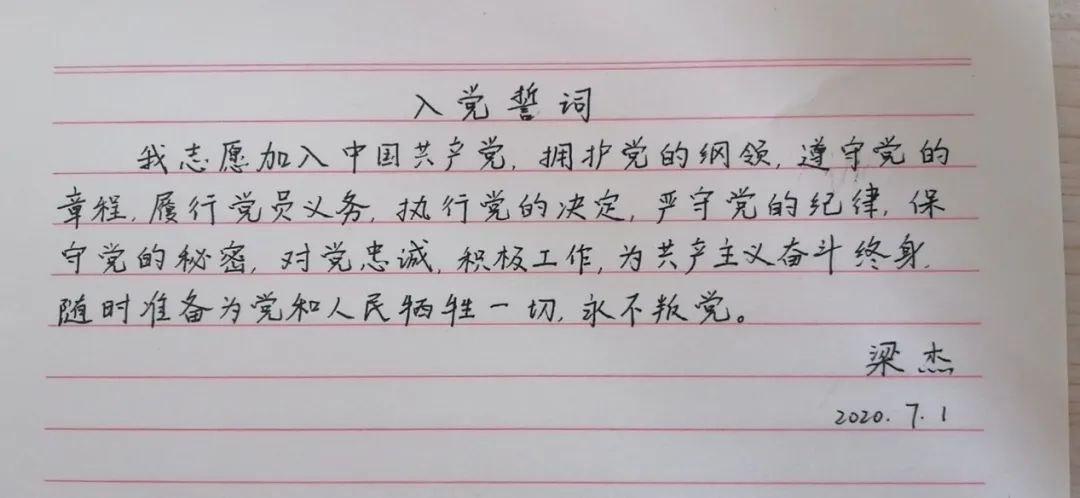 入党誓词
我志愿加入中国共产党,拥护党的纲领,遵守党的
章程,履行党员义务,执行党的决定,严守党的纪律,保
守党的秘密,对党忠诚,积极工作,为共产主义奋斗终身,
随时准备为党和人民牺牲一切,永不叛党。
梁杰
2020.7.1